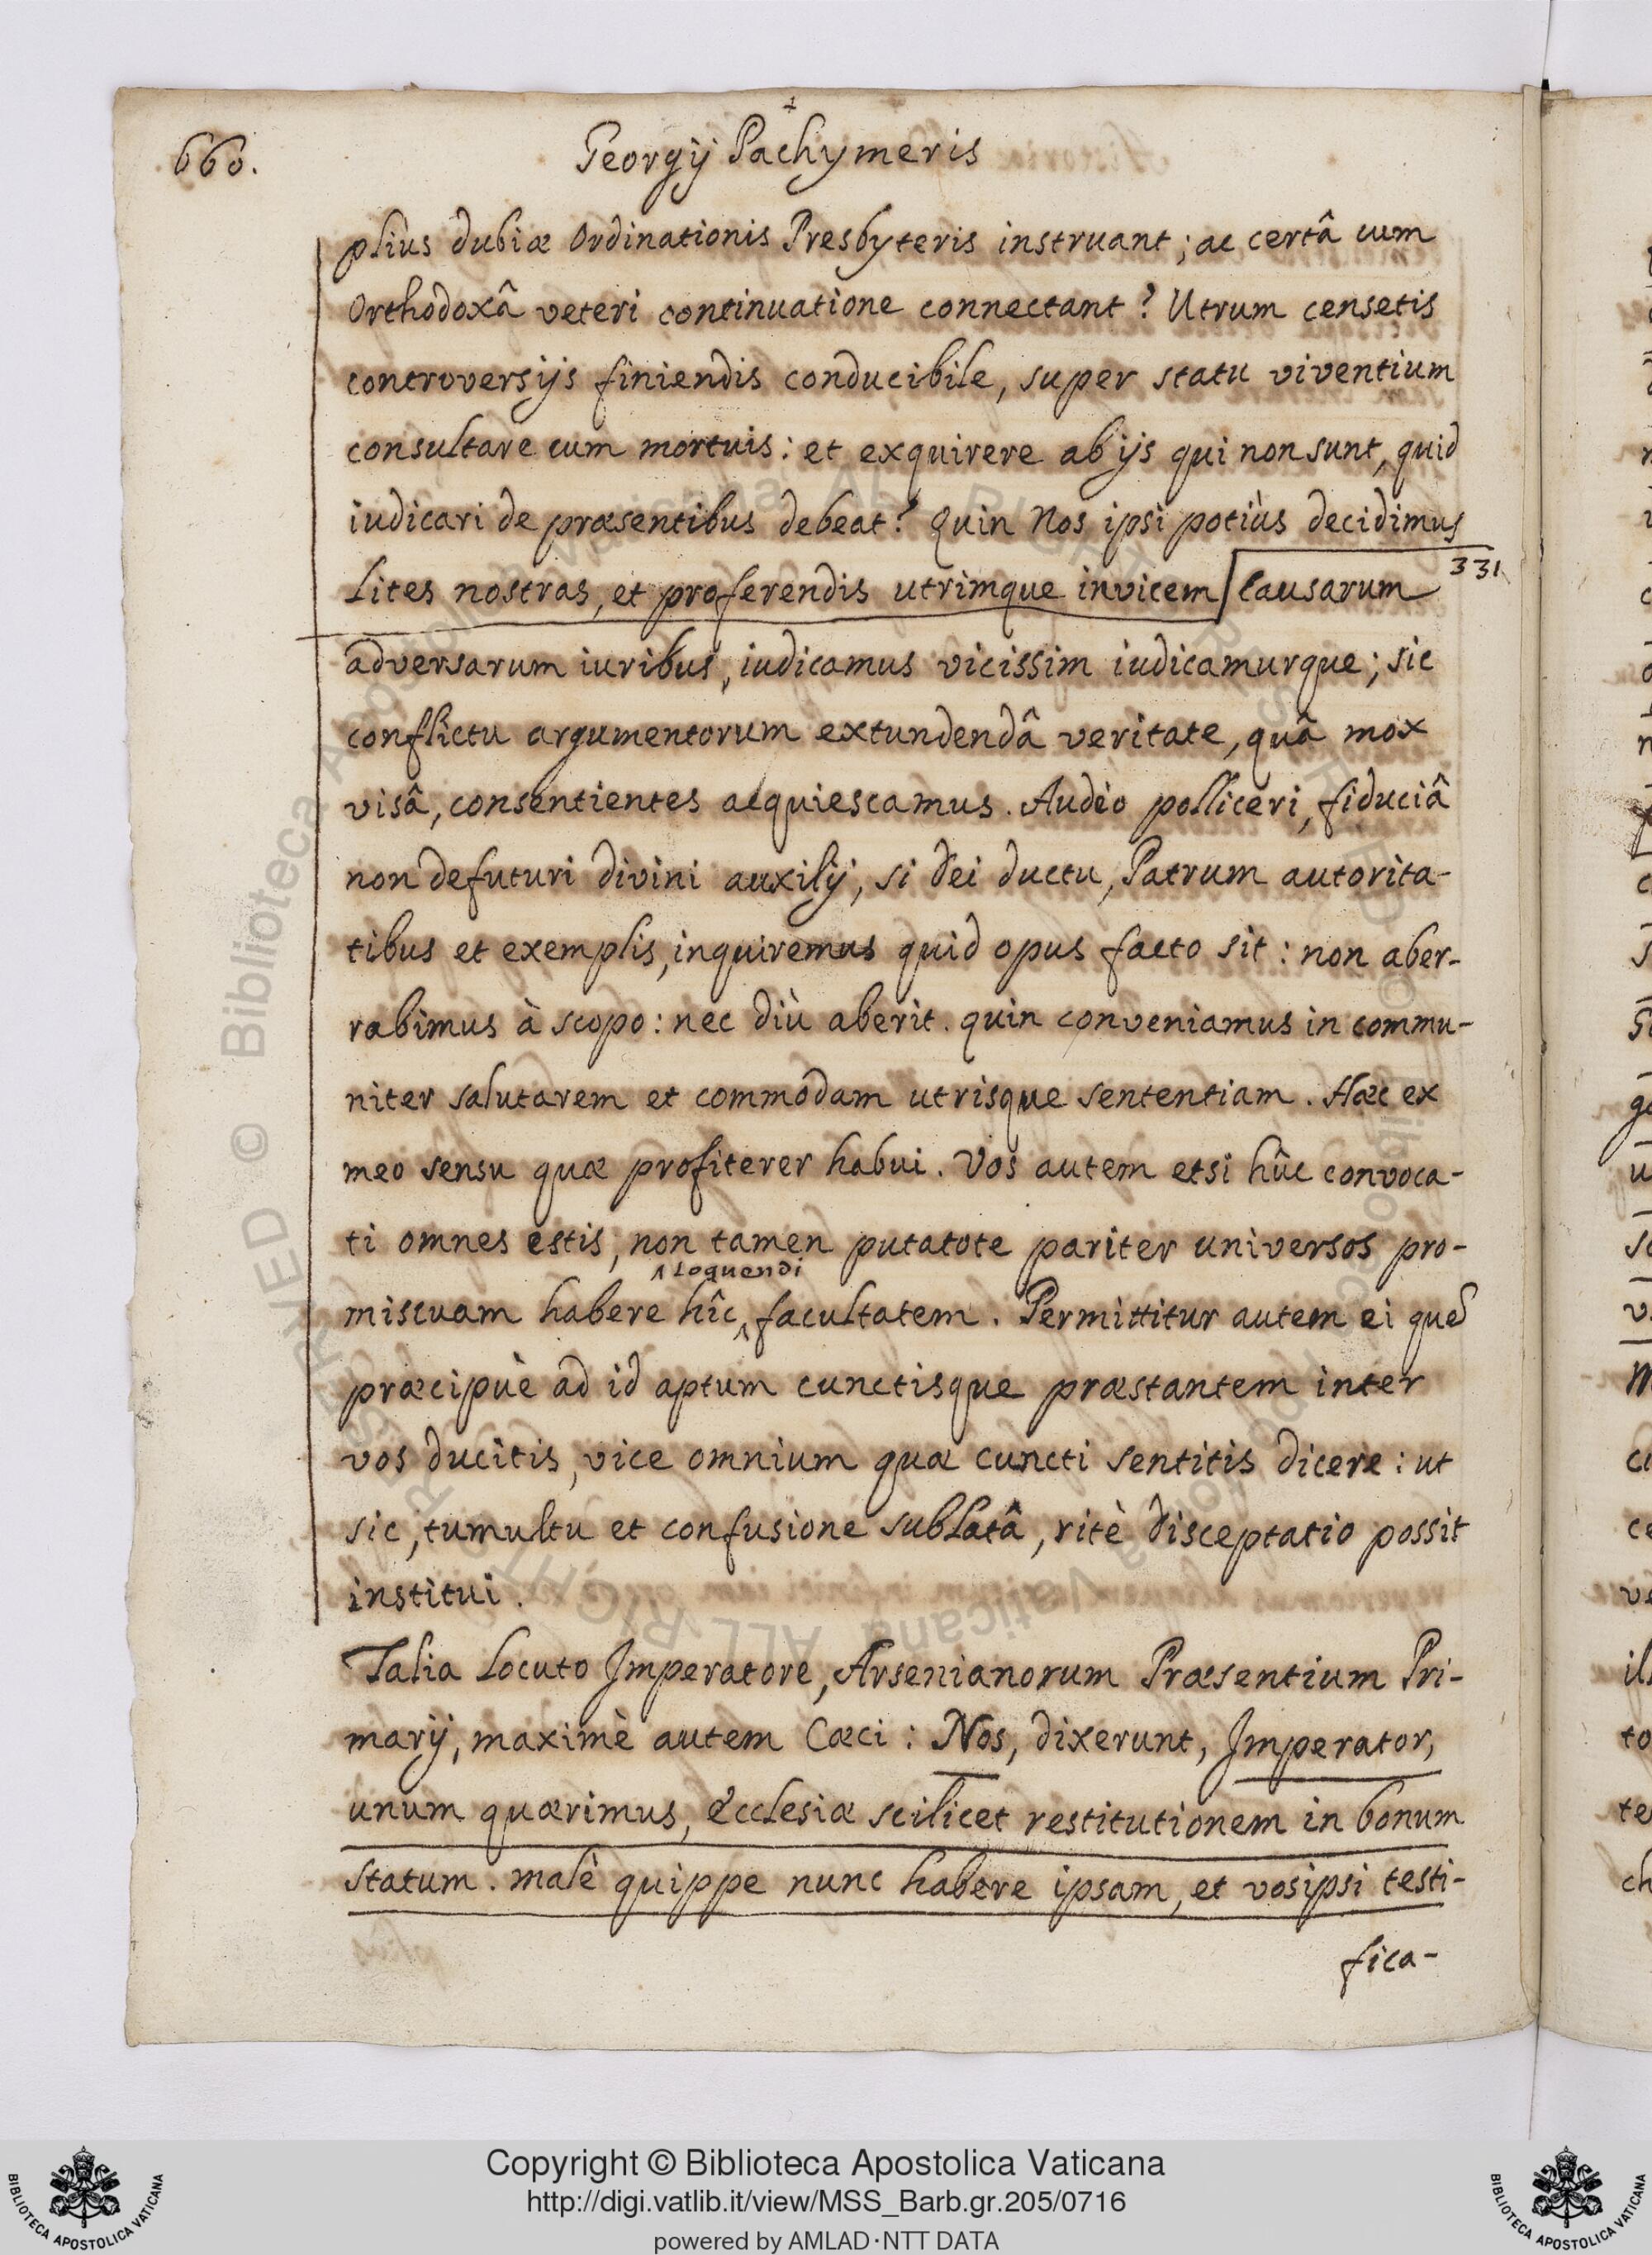 660.
Georgij Pachymeris
pliùs dubiæ Ordinationis Presbyteris instruant; ac certâ cum
Orthodoxâ veteri continuatione connectant? Utrum censetis
controversijs finiendis conducibile, super statu viventium
consultare cum mortuis: et exquirere ab ijs qui non sunt, quid
iudicari de præsentibus debeat? Quin Nos ipsi potiùs decidimus
331
Lites nostras, et proferendis utrimque invicem causarum
adversarum iuribus, iudicamus vicissim iudicamurque; sic
conflictu argumentorum extundendâ veritate, quâ mox
visâ, consentientes acquiescamus. Audeo polliceri, fiduciâ
non defuturi divini auxilij, si Dei ductu, Patrum autorita-
tibus et exemplis, inquiremus quid opus facto sit: non aber-
rabimus à scopo: nec diù aberit. quin conveniamus in commu-
niter salutarem et commodam utrisque sententiam. Hæc ex
meo sensu quæ profiterer habui. Vos autem etsi hûc convoca-
ti omnes estis, non tamen putatote pariter universos pro-
loquendi
miscuam habere hîc facultatem. Permittitur autem ei quẽ
præcipuè ad id aptum cunctisque præstantem inter
vos ducitis, vice omnium quæ cuncti sentitis dicere: ut
sic, tumultu et confusione sublatâ, ritè disceptatio possit
institui.
Talia Locuto Imperatore, Arsenianorum Præsentium Pri-
marij, maximè autem Cæci: Nos, dixerunt, Imperator,
unum quærimus, Ecclesiæ scilicet restitutionem in bonum
statum. malè quippe nunc habere ipsam, et vosipsi testi-
fica-
Copyright © Biblioteca Apostolica Vaticana
http://digi.vatlib.it/view/MSS_Barb.gr.205/0716
powered by AMLAD·NTT DATA
BIBLIOTECA APOSTOLICA VATICANA
BIBLIOTECA APOSTOLICA VATICANA